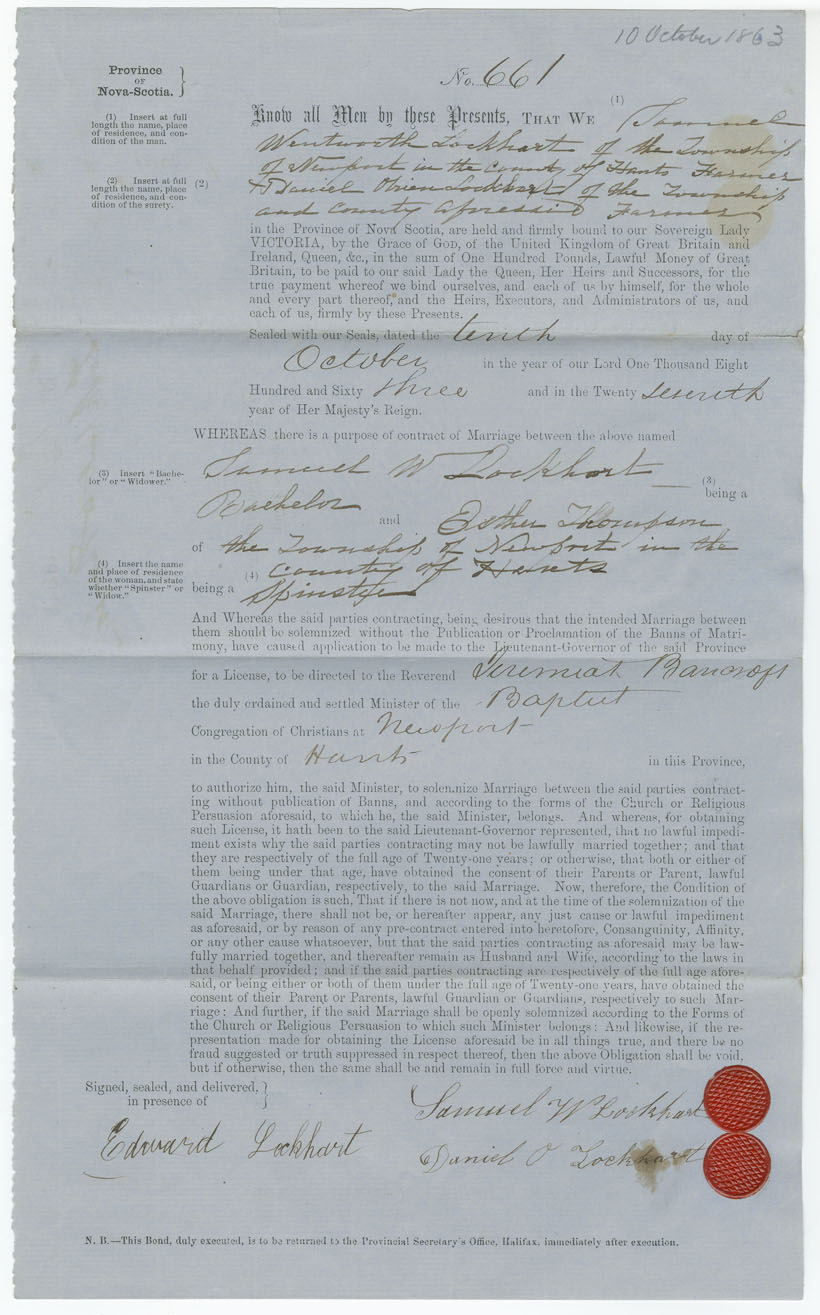 10 October 1863
Province
OF
Nova-Scotia.
No. 661
(1) Insert at full
length the name, place
of residence, and con-
dition of the man.
Know all Men by these Presents, THAT WE (1) Samuel
Wentworth Lockhart of the Township
of Newport in the County of Hants Farmer
(2) Insert at full
length the name, place
of residence, and con-
dition of the surety.
(2) & Daniel Obrien Lockhart of the Township
and County aforesaid Farmer
in the Province of Nova Scotia, are held and firmly bound to our Sovereign Lady
VICTORIA, by the Grace of GOD, of the United Kingdom of Great Britain and
Ireland, Queen, &c., in the sum of One Hundred Pounds, Lawful Money of Great
Britain, to be paid to our said Lady the Queen, Her Heirs and Successors, for the
true payment whereof we bind ourselves, and each of us by himself, for the whole
and every part thereof, and the Heirs, Executors, and Administrators of us, and
each of us, firmly by these Presents.
Sealed with our Seals, dated the tenth day of
October in the year of our Lord One Thousand Eight
Hundred and Sixty three and in the Twenty seventh
year of Her Majesty's Reign.
WHEREAS there is a purpose of contract of Marriage between the above named
(3) Insert "Bache-
lor" or "Widower."
Samuel W Lockhart (3)
being a
Bachelor and Esther Thompson
of the Township of Newport in the
(4) Insert the name
and place of residence
of the woman, and state
whether "Spinster" or
"Widow."
(4) County of Hants
being a Spinster
And Whereas the said parties contracting, being desirous that the intended Marriage between
them should be solemnized without the Publication or Proclamation of the Banns of Matri-
mony, have caused application to be made to the Lieutenant-Governor of the said Province
for a License, to be directed to the Reverend Jeremiah Bancroft
the duly ordained and settled Minister of the Baptist
Congregation of Christians at Newport
in the County of Hants in this Province,
to authorize him, the said Minister, to solemnize Marriage between the said parties contract-
ing without publication of Banns, and according to the forms of the Church or Religious
Persuasion aforesaid, to which he, the said Minister, belongs. And whereas, for obtaining
such License, it hath been to the said Lieutenant-Governor represented, that no lawful impedi-
ment exists why the said parties contracting may not be lawfully married together; and that
they are respectively of the full age of Twenty-one years; or otherwise, that both or either of
them being under that age, have obtained the consent of their Parents or Parent, lawful
Guardians or Guardian, respectively, to the said Marriage. Now, therefore, the Condition of
the above obligation is such, That if there is not now, and at the time of the solemnization of the
said Marriage, there shall not be, or hereafter appear, any just cause or lawful impediment
as aforesaid, or by reason of any pre-contract entered into heretofore, Consanguinity, Affinity,
or any other cause whatsoever, but that the said parties contracting as aforesaid may be law-
fully married together, and thereafter remain as Husband and Wife, according to the laws in
that behalf provided; and if the said parties contracting are respectively of the full age afore-
said, or being either or both of them under the full age of Twenty-one years, have obtained the
consent of their Parent or Parents, lawful Guardian or Guardians, respectively to such Mar-
riage: And further, if the said Marriage shall be openly solemnized according to the Forms of
the Church or Religious Persuasion to which such Minister belongs: And likewise, if the re-
presentation made for obtaining the License aforesaid be in all things true, and there be no
fraud suggested or truth suppressed in respect thereof, then the above Obligation shall be void,
but if otherwise, then the same shall be and remain in full force and virtue.
Signed, sealed, and delivered,
in presence of
Samuel W Lockhart
Edward Lockhart
Daniel O Lockhart
N. B.—This Bond, duly executed, is to be returned to the Provincial Secretary's Office, Halifax, immediately after execution.